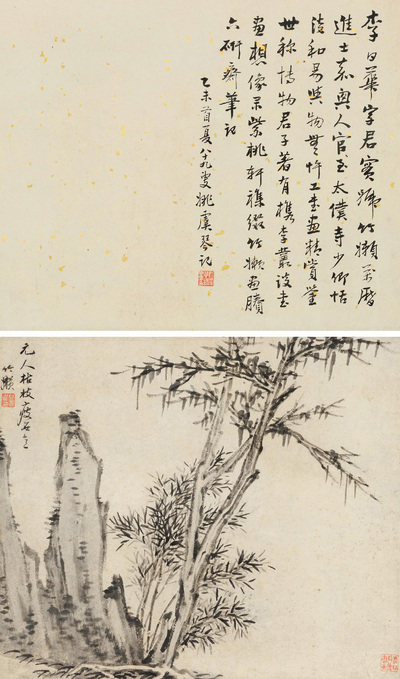 李日華字君實號竹嬾萬曆
進士嘉興人官至太僕寺少卿恬
淡和易與物無忤工書畫精賞鑒
世稱博物君子著有檇李叢談書
畫想像录紫桃軒雜綴竹嬾畫賸
六研齋筆記
乙未首夏八十九叟姚虞琴記
元人枯枝瘦石意
竹嬾